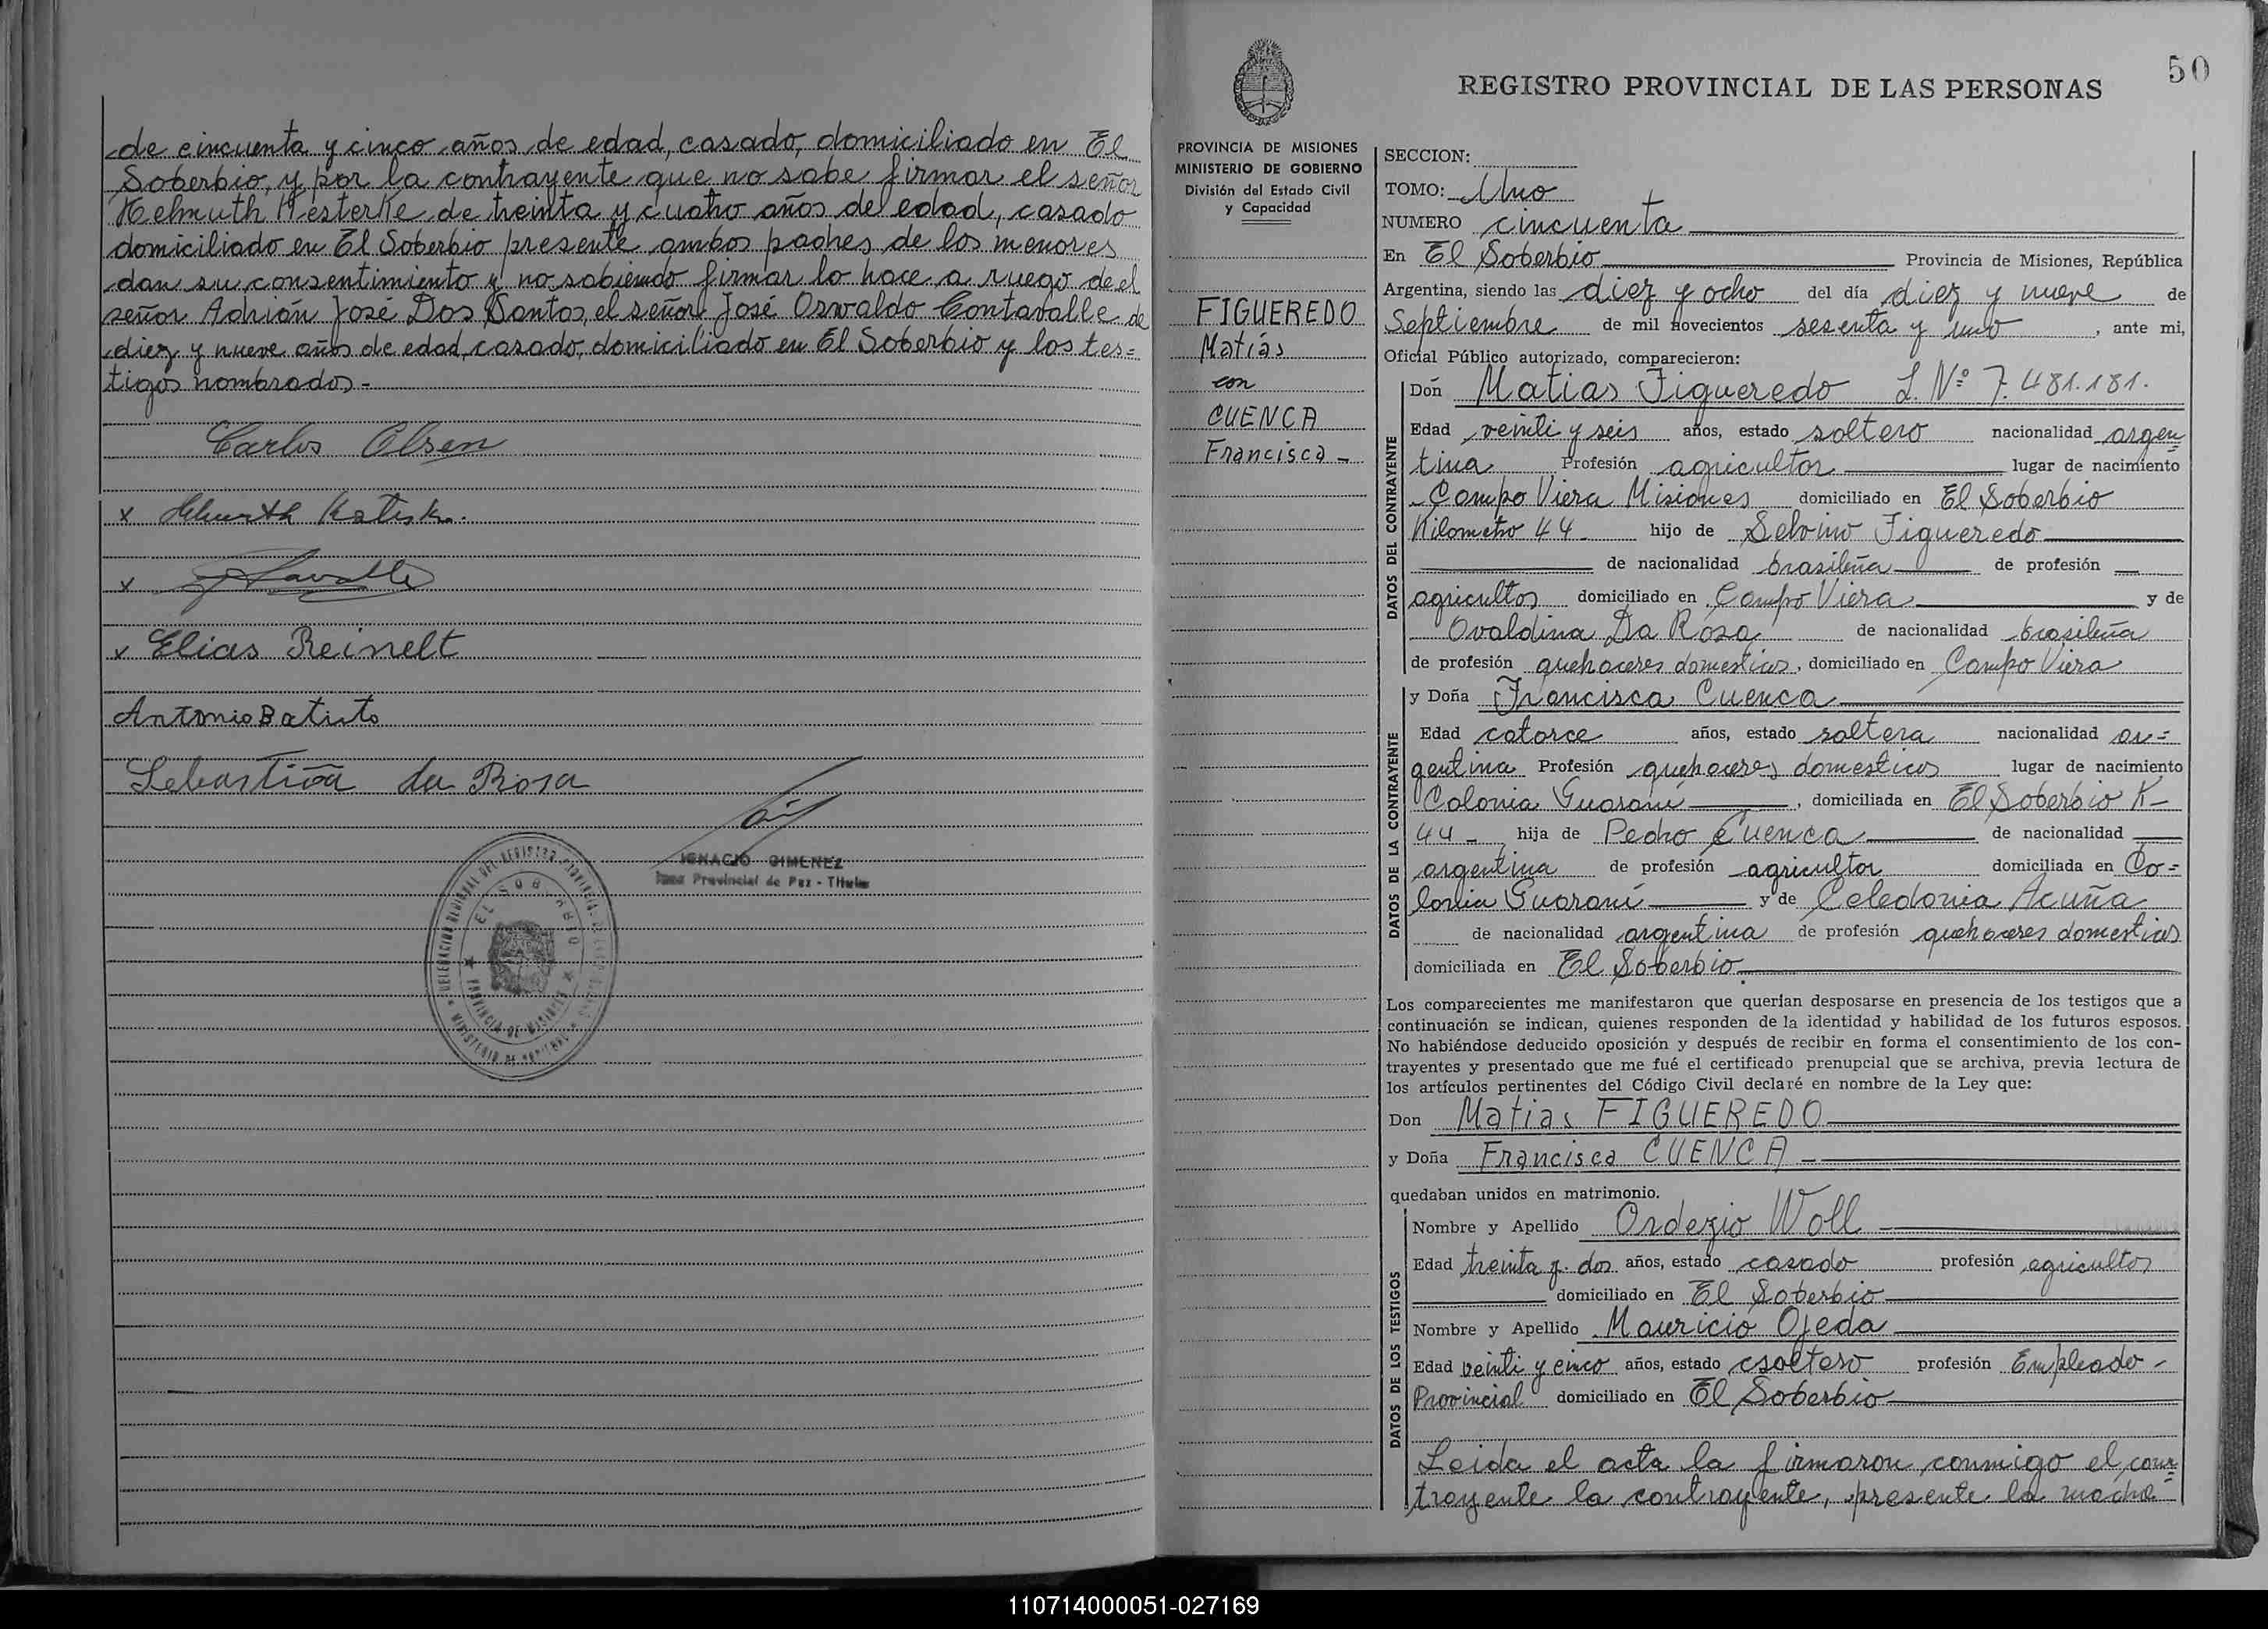 de cincuenta y cinco años de edad, casado, domiciliado en El
Soberbio, y por la contrayente que no sabe firmar el señor
Helmuth Hesterke de treinta y cuatro años de edad, casado
domiciliado en El Soberbio presente ambos padres de los menores
dan su consentimiento y no sabiendo firmar lo hace a ruego de el
señor Adrián José Dos Santos, el señor José Oswaldo Contavalle de
diez y nueve años de edad, casado, domiciliado en El Soberbio y los tes=
tigos nombrados-
Carlos Olsen
x
x
x Elias Reinelt
Antonio Batisto
Sebastiõa da Rosa
IGNACIO GIMENEZ
Juez Provincial de Paz - Titular
EL SOBERBIO
PROVINCIA DE MISIONES
50
REGISTRO PROVINCIAL DE LAS PERSONAS
PROVINCIA DE MISIONES
MINISTERIO DE GOBIERNO
División del Estado Civil
y Capacidad
FIGUEREDO
Matías
con
CUENCA
Francisca -
SECCION:
TOMO: Uno
NUMERO cincuenta
En El Soberbio Provincia de Misiones, República
Argentina, siendo las diez y ocho del día diez y nueve de
Septiembre de mil novecientos sesenta y uno, ante mi,
Oficial Público autorizado, comparecieron:
DATOS DEL CONTRAYENTE
Don Matias Figueredo L. Nº 7.481.181.
Edad veinti y seis años, estado soltero nacionalidad argen=
tina Profesión agricultor lugar de nacimiento
Campo Viera Misiones domiciliado en El Soberbio
Kilometro 44- hijo de Selvino Figueredo
de nacionalidad brasileña de profesión
agricultor domiciliado en Campo Viera y de
Ovaldina Da Rosa de nacionalidad brasileña
de profesión quehaceres domesticos, domiciliado en Campo Viera
DATOS DE LA CONTRAYENTE
y Doña Francisca Cuenca
Edad catorce años, estado soltera nacionalidad ar=
gentina Profesión quehaceres domesticos lugar de nacimiento
Colonia Guaraní, domiciliada en El Soberbio K-
44-, hija de Pedro Cuenca de nacionalidad
argentina de profesión agricultor domiciliada en Co=
lonia Guaraní y de Celedonia Acuña
de nacionalidad argentina de profesión quehaceres domesticos
domiciliada en El Soberbio
Los comparecientes me manifestaron que querían desposarse en presencia de los testigos que a
continuación se indican, quienes responden de la identidad y habilidad de los futuros esposos.
No habiéndose deducido oposición y después de recibir en forma el consentimiento de los con-
trayentes y presentado que me fué el certificado prenupcial que se archiva, previa lectura de
los artículos pertinentes del Código Civil declaré en nombre de la Ley que:
Don Matias FIGUEREDO
y Doña Francisca CUENCA -
quedaban unidos en matrimonio.
DATOS DE LOS TESTIGOS
Nombre y Apellido Ordezio Woll
Edad treinta y dos años, estado casado profesión agricultor
domiciliado en El Soberbio
Nombre y Apellido Mauricio Ojeda
Edad veinti y cinco años, estado soltero profesión Empleado-
Provincial domiciliado en El Soberbio
Leida el acta la firmaron conmigo el con=
trayente la contrayente, presente la madre
110714000051-027169